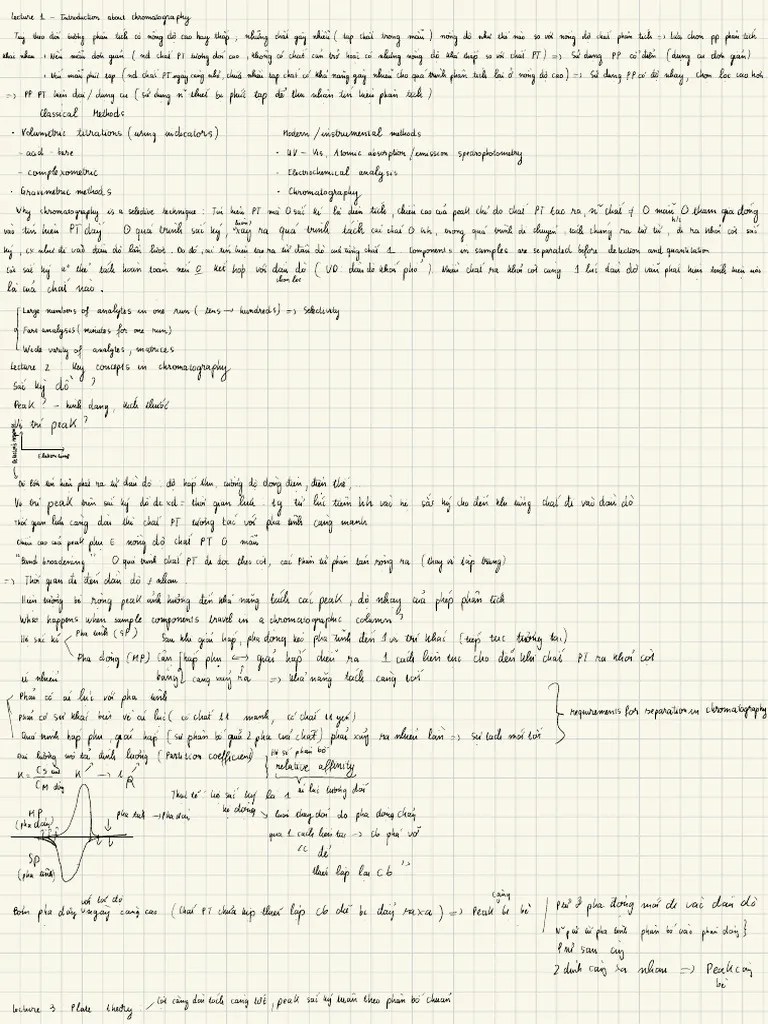 Lecture 1 - Introduction about chromatography
Tùy theo đối tượng phân tích có nồng độ cao hay thấp, những chất gây nhiễu (tạp chất trong mẫu) nồng độ như thế nào so với nồng độ chất phân tích => lựa chọn pp phân tích
khác nhau. Nền mẫu đơn giản (nđ chất PT tương đối cao, không có chất cản trở hoặc có nhưng nồng độ khá thấp so với chất PT) => Sử dụng PP cổ điển (dụng cụ đơn giản)
Nền mẫu phức tạp (nđ chất PT ngày càng nhỏ, chứa nhiều tạp chất có khả năng gây nhiễu cho quá trình phân tích lại ở nồng độ cao) => Sử dụng PP có độ nhạy, chọn lọc cao hơn
=> PP PT hiện đại / dụng cụ (sử dụng thiết bị phức tạp để thu nhận tín hiệu phân tích)
Classical Methods
• Volumetric titrations (using indicators) Modern / instrumental methods
- acid - base • UV - Vis, Atomic absorption / emission spectrophotometry
- complexometric • Electrochemical analysis
• Gravimetric methods • Chromatography
Why chromatography is a selective technique: Tín hiệu PT mà sắc kí là diện tích, chiều cao của peak chỉ do chất PT tạo ra, chất mẫu tham gia đóng
vào tín hiệu PT đấy. quá trình sắc ký, xảy ra quá trình tách các chất trong quá trình di chuyển, tách chúng ra từ từ, đi ra khỏi cột sắc
ký, đi vào đầu dò lần lượt. Do đó, tín hiệu tạo ra từ đầu dò chất. Components in samples are separated before detection and quantitation
tách hoàn toàn nếu kết hợp với đầu dò (VD đầu dò khối phổ). Nhiều chất ra khỏi cột cùng 1 lúc đầu dò vẫn phát hiện
chọn lọc
là của chất nào.
Large numbers of analytes in one run (tens -> hundreds) => Selectivity
Fast analysis (minutes for one run)
Wide variety of analytes, matrices
Lecture 2 Key concepts in chromatography
Sắc ký đồ?
Peak? - hình dạng, kích thước
Vị trí peak?
Elution time
Độ lớn tín hiệu phát ra từ đầu dò: độ hấp thu, cường độ dòng điện, điện thế,
Vị trí peak trên sắc ký đồ đc xđ = thời gian lưu. tg từ lúc tiêm vào hệ sắc ký cho đến khi từng chất đi vào đầu dò
Thời gian lưu càng dài thì chất PT tương tác với pha tĩnh càng mạnh
Chiều cao của peak phụ ∈ nồng độ chất PT mẫu
"Band broadening" quá trình chất PT đi dọc theo cột, các phân tử phân tán rộng ra (thay vì tập trung)
=> Thời gian để đến đầu dò ≠ nhau.
Hiện tượng bè rộng peak ảnh hưởng đến khả năng tách các peak, độ nhạy của phép phân tích
What happens when sample components travel in a chromatographic column?
Hệ sắc kí Pha tĩnh (SP) Sau khi giải hấp, pha động kéo pha tĩnh đến 1 vị trí khác (tiếp tục tương tác)
Pha động (MP) Cân bằng hấp phụ <-> giải hấp diễn ra 1 cách liên tục cho đến khi chất PT ra khỏi cột
càng xảy ra nhiều => khả năng tách càng tốt
Phải có ái lực với pha tĩnh
Phải có sự khác biệt về ái lực (có chất lk mạnh, có chất lk yếu) requirements for separation in chromatography
Quá trình hấp phụ, giải hấp (sự phân bố giữa 2 pha của chất) phải xảy ra nhiều lần => sự tách mới tốt
Đại lượng mô tả định lượng (Partition coefficient) hệ số phân bố
relative affinity
ái lực tương đối
K = Cs / CM K -> tR
Thực tế: hệ sắc ký là 1 hệ động luôn thay đổi do pha động chảy
MP (pha động) pha tĩnh -> Pha động
qua 1 cách liên tục -> cb phá vỡ
SP (pha tĩnh) để
thiết lập lại cb
Bơm pha động với tốc độ ngày càng cao (chất PT chưa kịp thiết lập cb đã bị đẩy ra xa) => Peak càng bị bè
Ptử ở pha động mới đi vào đầu dò
ptử ở pha tĩnh phân bố vào pha động
Ptử sau cùng
2 đỉnh càng xa nhau => Peak càng bè
Lecture 3 Plate theory Cột càng dài tách càng tốt, peak sắc ký tuân theo phân bố chuẩn